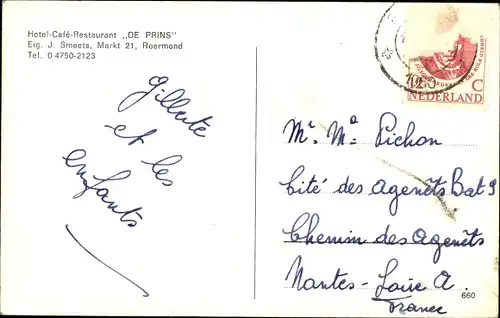 Hotel-Café-Restaurant ,,DE PRINS"
Eig. J. Smeets, Markt 21, Roermond
Tel. 0 4750-2123
et les
enfants
NEDERLAND
Mr. Me Pichon
Cité des Agenêts Bat 9
Chemin des Agenêts
Nantes - Loire A.
France
660